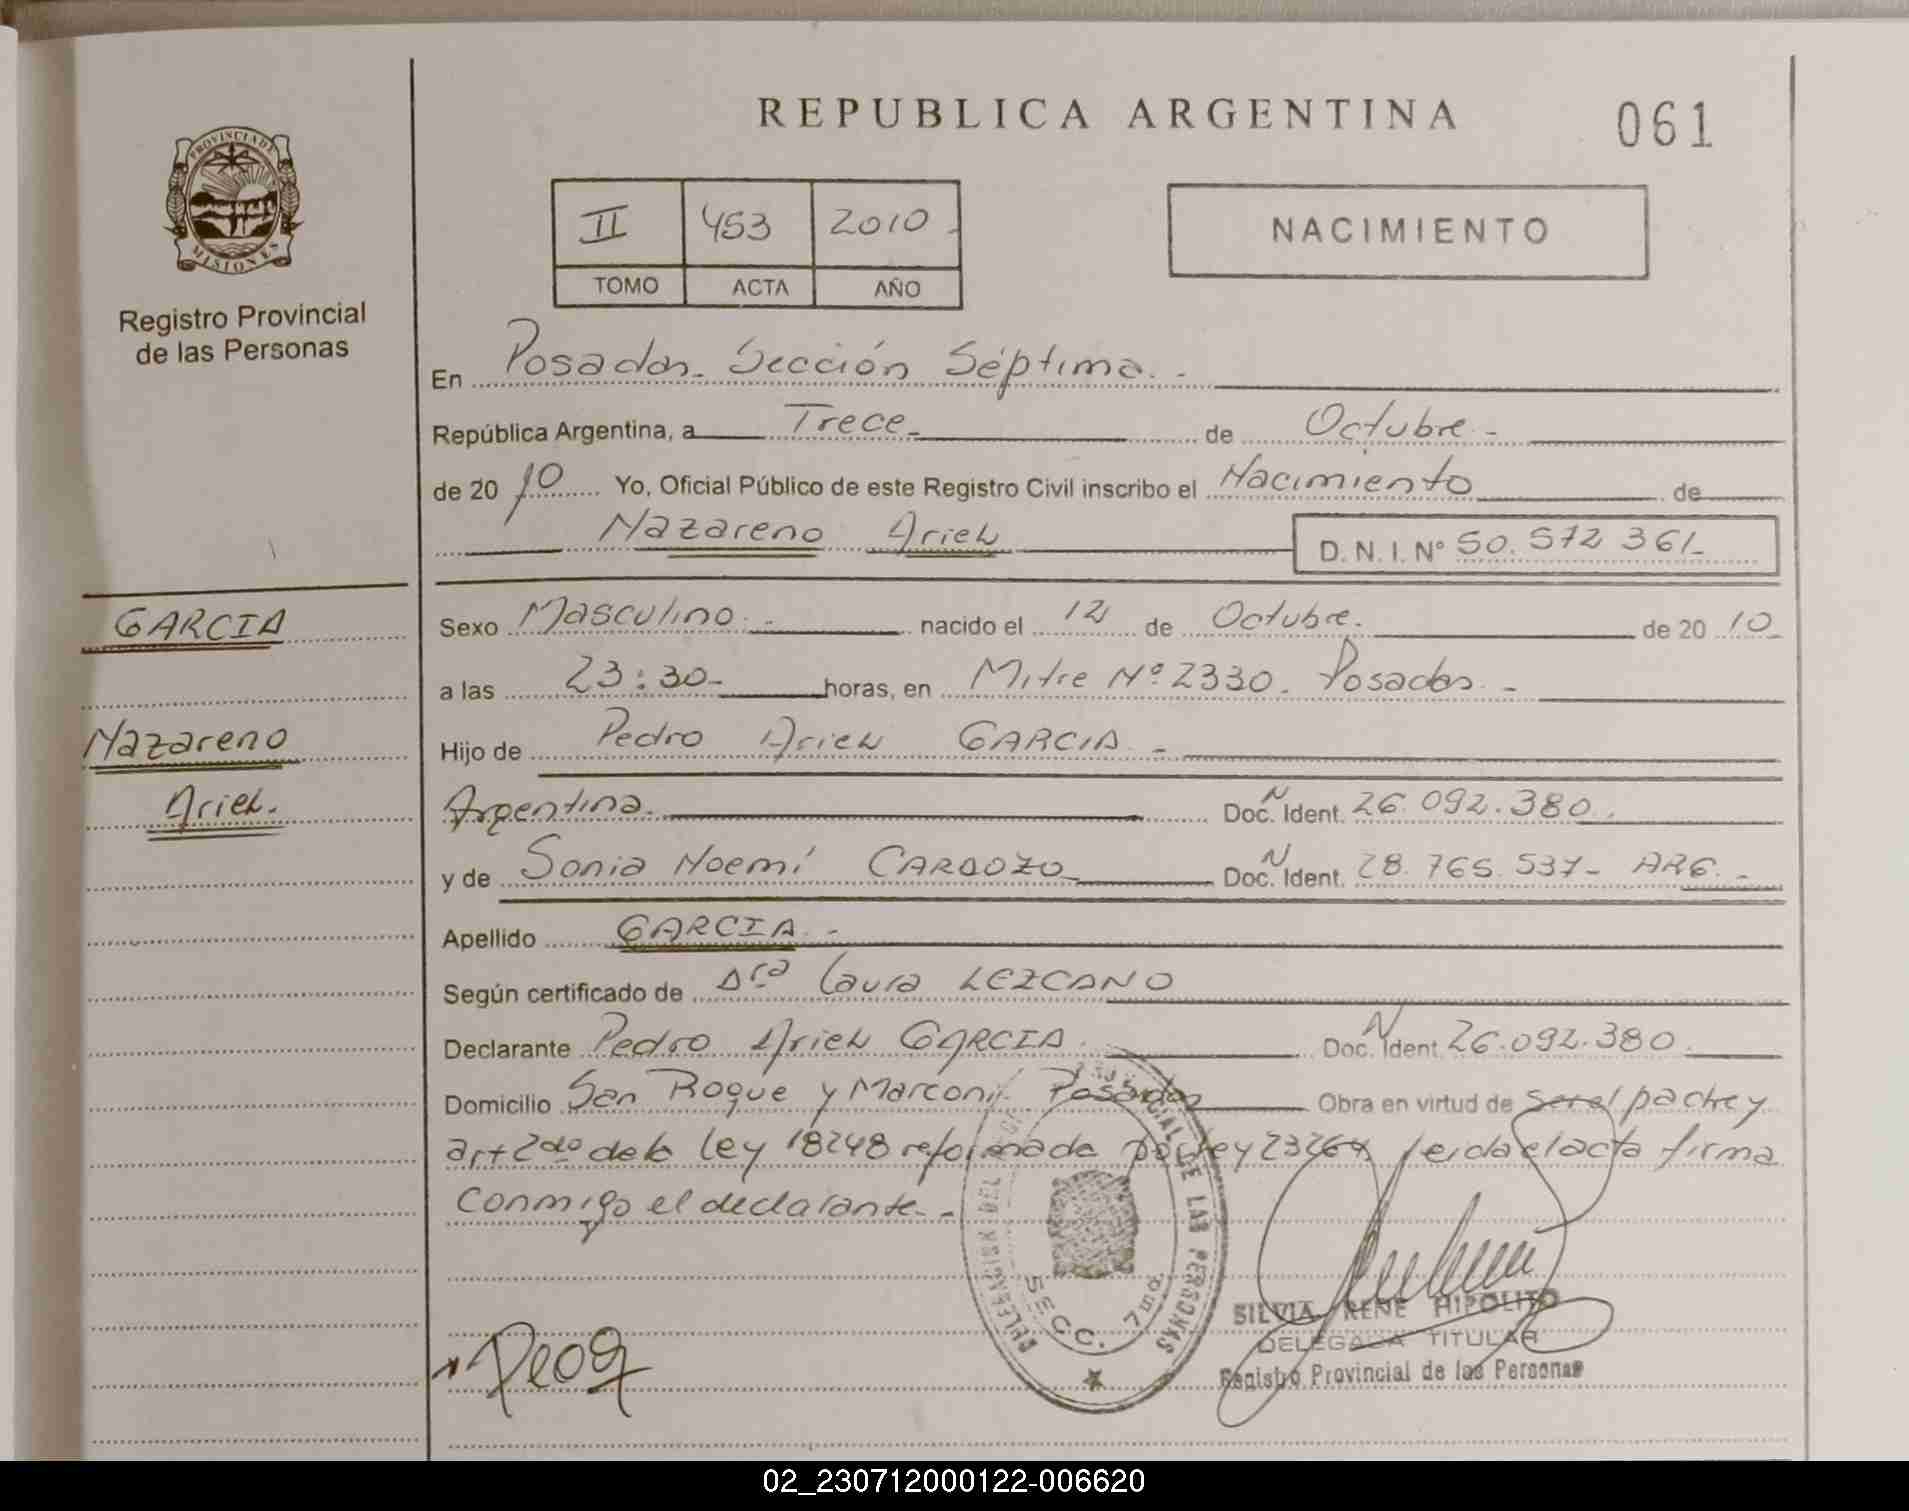 REPUBLICA ARGENTINA
061
PROVINCIA DE
MISIONES
Registro Provincial
de las Personas
II 453 2010
TOMO ACTA AÑO
NACIMIENTO
En Posadas. Sección Séptima. -
República Argentina, a Trece de Octubre -
de 20 10 Yo, Oficial Público de este Registro Civil inscribo el Nacimiento de
Nazareno Ariel D. N. I. Nº 50. 572 361-
GARCIA
Sexo Masculino. - nacido el 12 de Octubre. de 20 10
a las 23:30- horas, en Mitre Nº 2330. Posadas. -
Nazareno
Hijo de Pedro Ariel GARCIA. -
Ariel.
Argentina. Doc. N Ident. 26.092.380.
y de Sonia Noemí CARDOZO Doc. N Ident. 28.765.537- ARG. -
Apellido GARCIA. -
Según certificado de Dra Laura LEZCANO
Declarante Pedro Ariel GARCIA. Doc. N Ident. 26.092.380
Domicilio San Roque y Marconi. Posadas Obra en virtud de ser el padre y
art 2do de la Ley 18248 reformada por Ley 23264 leida el acta firma
conmigo el declarante. -
DELEGACION DEL PROVINCIAL DE LAS PERSONAS
SECC. 7ma.
SILVIA RENE HIPOLITO
DELEGADA TITULAR
Registro Provincial de las Personas
02_230712000122-006620